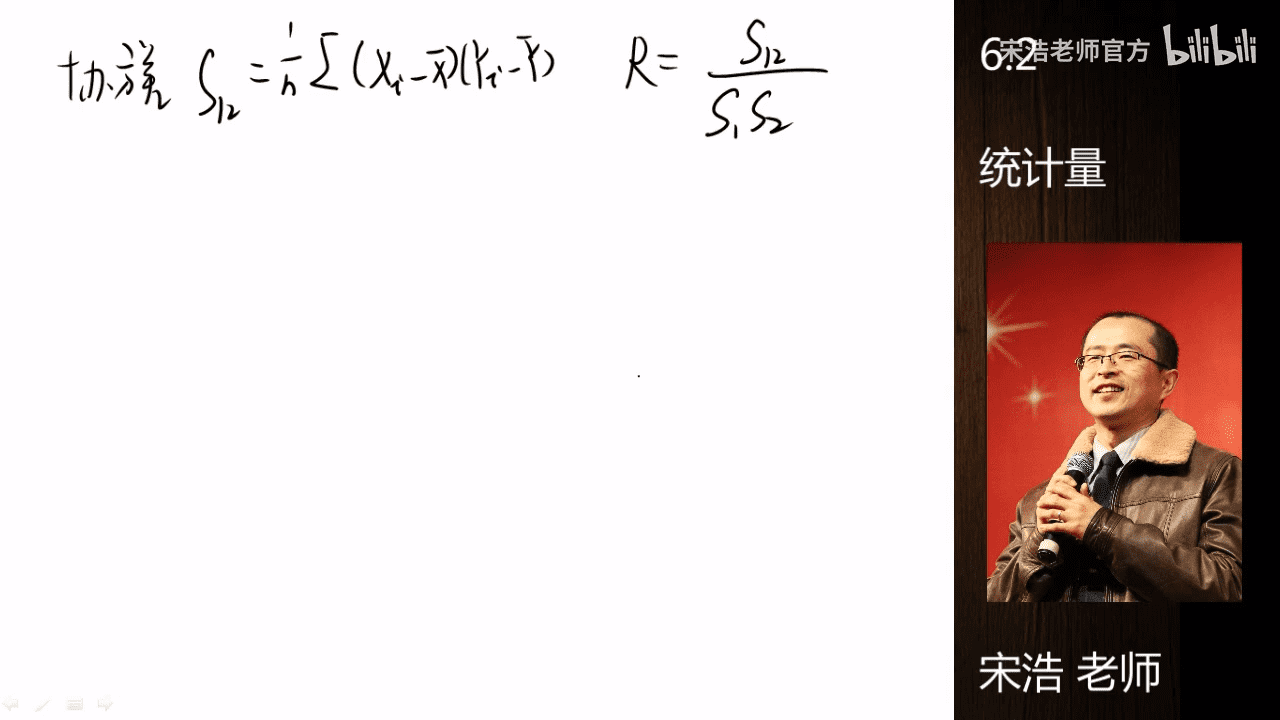 协方差 S₁₂ = 1/n Σ(Xᵢ-X̄)(Yᵢ-Ȳ) R = S₁₂/S₁S₂
宋浩老师官方 bilibili
6.2
统计量
宋浩 老师